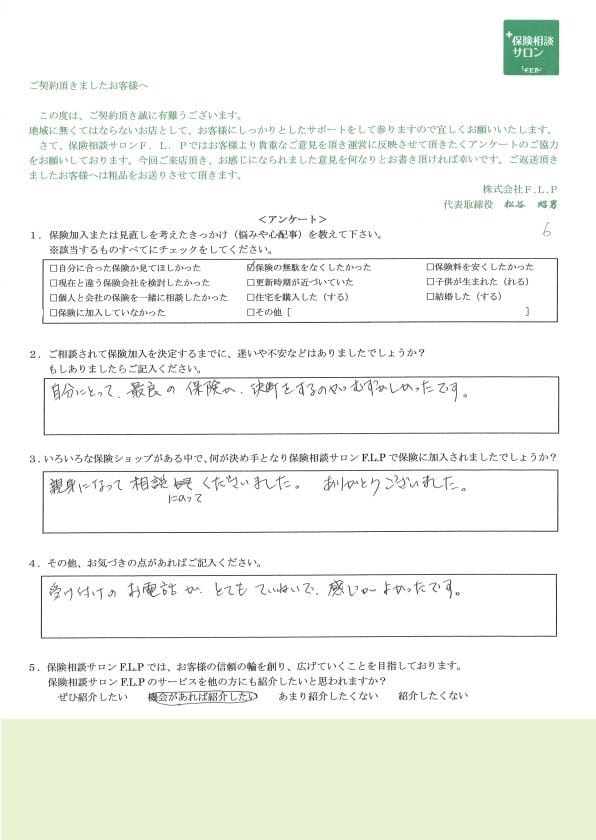 保険相談
サロン
F.L.P
ご契約頂きましたお客様へ
この度は、ご契約頂き誠に有難うございます。
地域に無くてはならないお店として、お客様にしっかりとしたサポートをして参りますので宜しくお願いいたします。
さて、保険相談サロンF．L．Pではお客様より貴重なご意見を頂き運営に反映させて頂きたくアンケートのご協力
をお願いしております。今回ご来店頂き、お感じになられました意見を何なりとお書き頂ければ幸いです。ご返送頂き
ましたお客様へは粗品をお送りさせて頂きます。
株式会社F.L.P
代表取締役 松谷 昭男
6
＜アンケート＞
１．保険加入または見直しを考えたきっかけ（悩みや心配事）を教えて下さい。
※該当するものすべてにチェックをしてください。
□自分に合った保険か見てほしかった ☑保険の無駄をなくしたかった □保険料を安くしたかった
□現在と違う保険会社を検討したかった □更新時期が近づいていた □子供が生まれた（れる）
□個人と会社の保険を一緒に相談したかった □住宅を購入した（する） □結婚した（する）
□保険に加入していなかった □その他［ ］
２．ご相談されて保険加入を決定するまでに、迷いや不安などはありましたでしょうか？
もしありましたらご記入ください。
自分にとって、最良の保険か、決断をするのがむずかしかったです。
３．いろいろな保険ショップがある中で、何が決め手となり保険相談サロンF.L.Pで保険に加入されましたでしょうか？
親身になって相談 くださいました。 ありがとうございました。
にのって
４．その他、お気づきの点があればご記入ください。
受け付けのお電話が、とてもていねいで、感じがよかったです。
５．保険相談サロンF.L.Pでは、お客様の信頼の輪を創り、広げていくことを目指しております。
保険相談サロンF.L.Pのサービスを他の方にも紹介したいと思われますか？
ぜひ紹介したい 機会があれば紹介したい あまり紹介したくない 紹介したくない